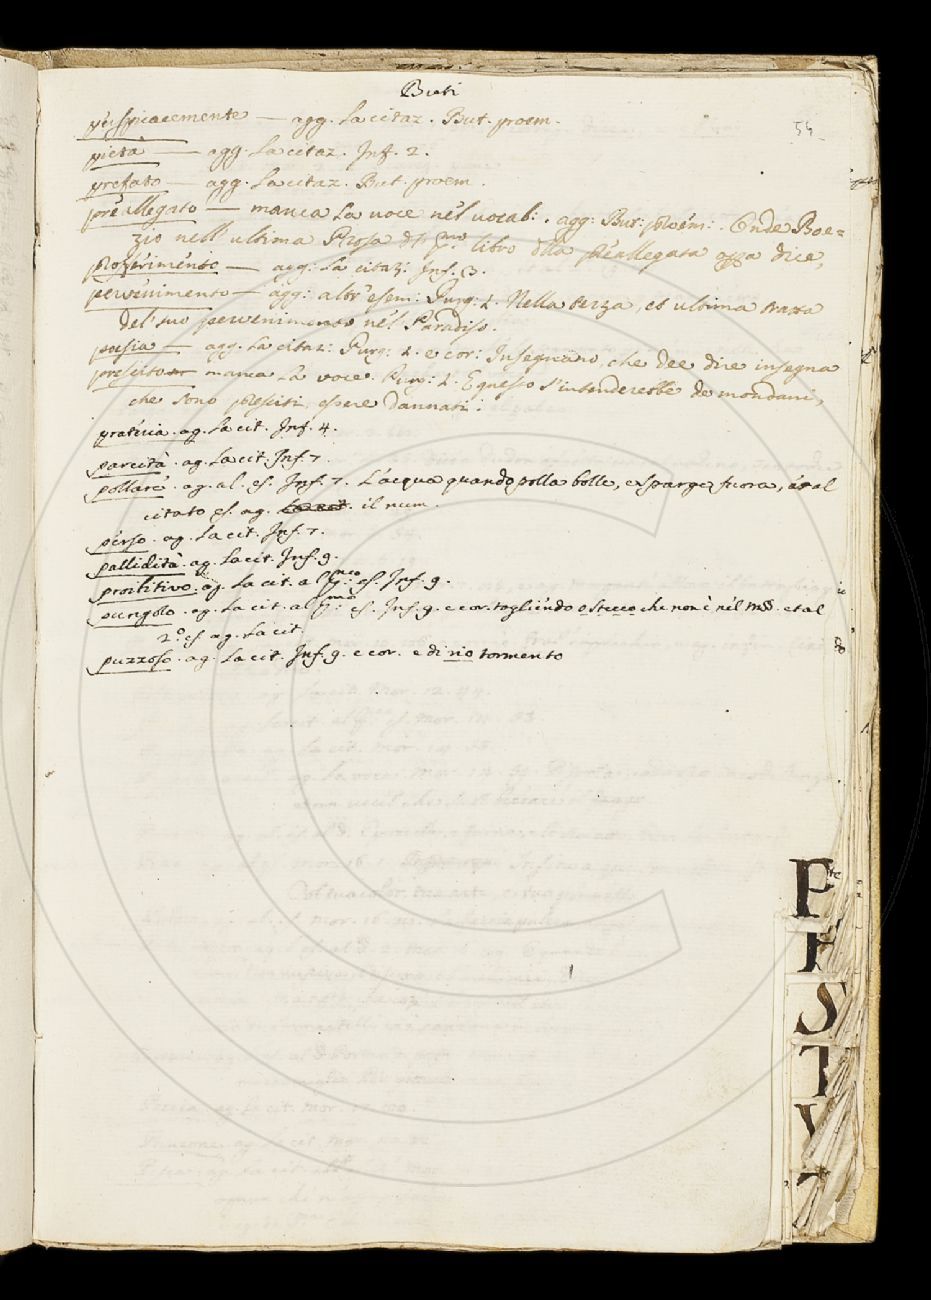 Buti
54
perspicacemente — agg. la citaz. But. proem.
pietà — agg. la citaz. Inf. 2.
prefato — agg. la citaz. But. proem.
preallegato — manca la voce nel vocab: . agg: But: proem: . Onde Boe=
zio nell' ultima Prosa del pmo libro della preallegata opa dice,
profferimento — agg: la citaz: Inf. 3.
pervenimento — agg: altr' esem: Purg: 1. Nella terza, et ultima trata
del suo pervenimento nel Paradiso.
poesia — agg. la citaz: Purg: 1. e cor: Insegnano, che dee dire insegna
prescito manca la voce. Purg: 1. E questo s'intenderebbe de mondani,
che sono presciti, essere dannati:
prateria. ag. la cit. Inf. 4.
parcità. ag. la cit. Inf. 7.
pollare. ag. al. es. Inf. 7. L'acqua quando polla bolle, e sparge fuora, et al
citato es. ag. la cit. il num.
perso. ag. la cit. Inf. 7.
pallidità. ag. la cit. Inf. 9.
ag. la cit. al pmo. es. Inf. 9.
pungolo. ag. la cit. al pmo. es. Inf. 9. e cor. togliendo o stecco che non è nel mss. et al
2.o es. ag. la cit.
puzzoso. ag. la cit. Inf. 9. e cor. e di rio tormento
P
S
T
V